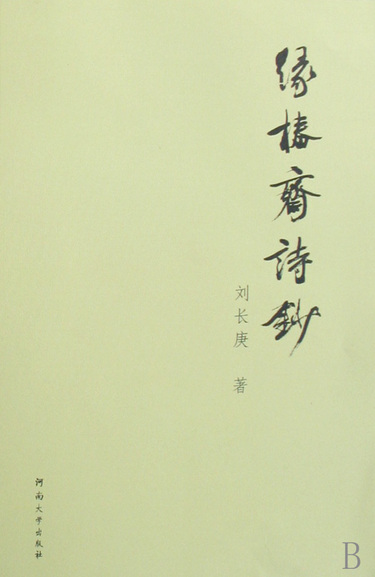 缘椿齋詩鈔
刘长庚 著
河南大学出版社
B